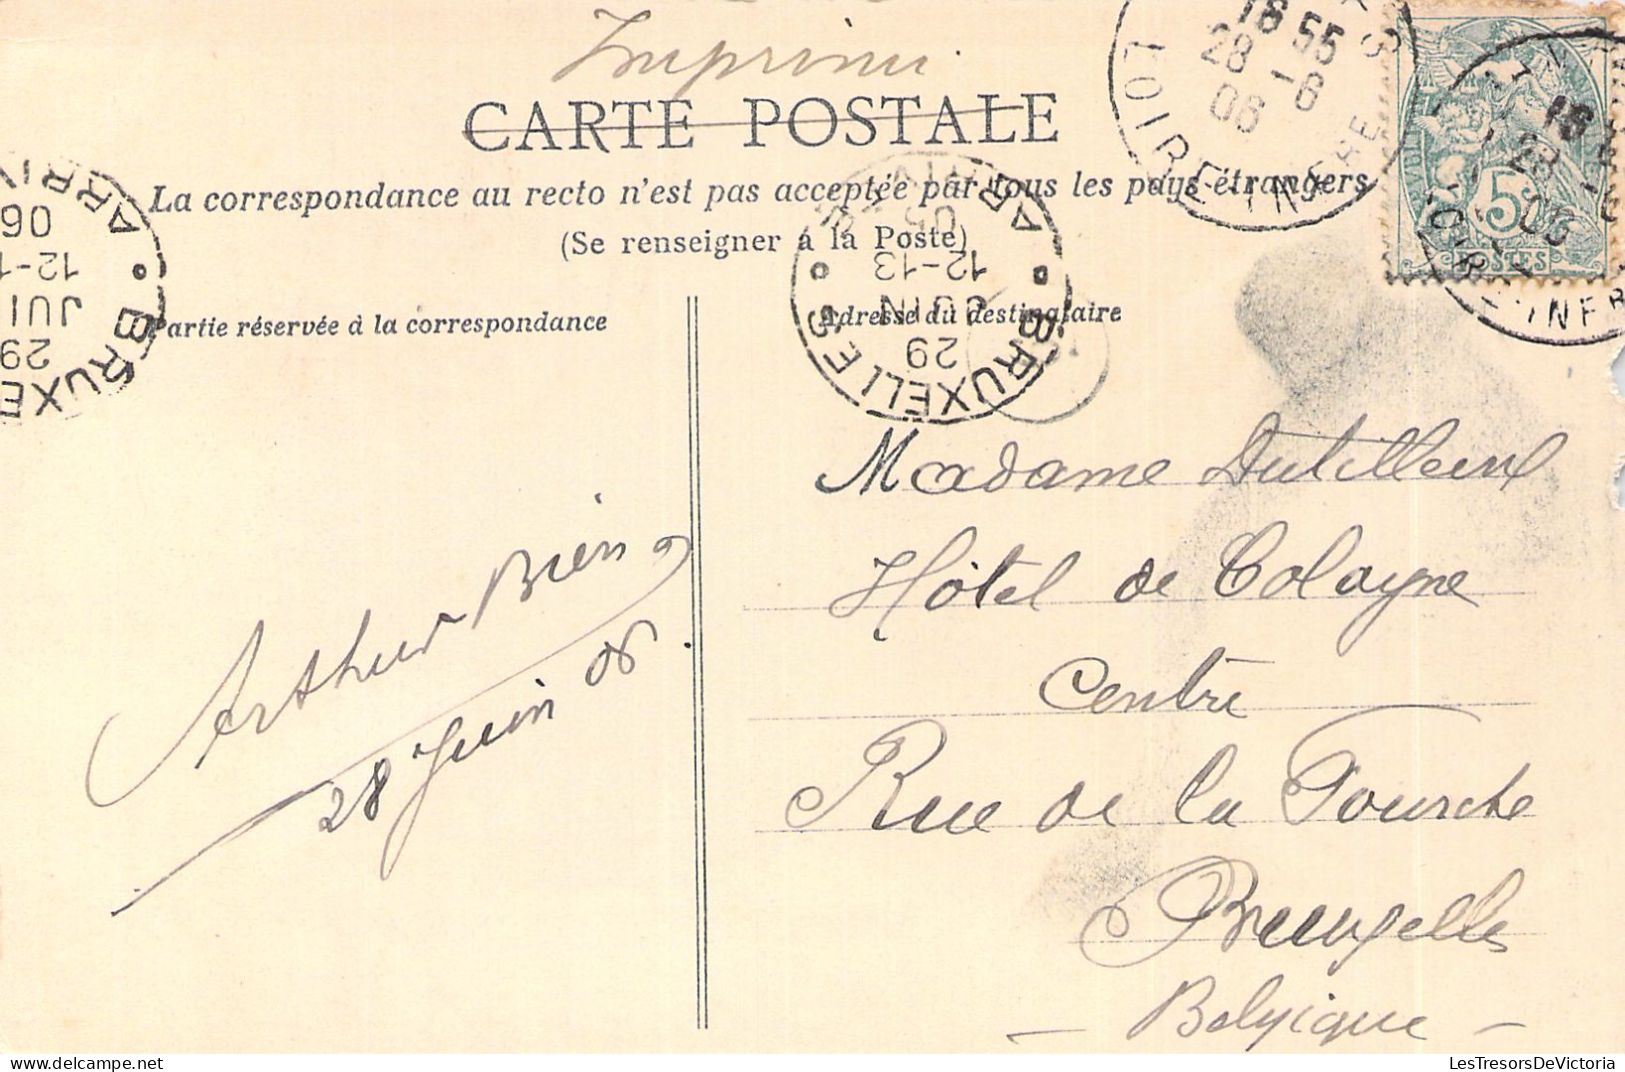 Imprimé
CARTE POSTALE
La correspondance au recto n'est pas acceptée par tous les pays étrangers
(Se renseigner à la Poste)
Partie réservée à la correspondance
Adresse du destinataire
LOIRE-INFRE
16 55
28 -6
06
16
28 -6
06
5
POSTES
BRUXELLES
29
JUIN
12-13
ARRIVÉE
BRUXE
29
JUI
12-1
06
ARRI
Madame Dutilleul
Hôtel de Cologne
Centre
Rue de la Fourche
Bruxelles
- Belgique -
Arthur Bien
28 Juin 06
LesTresorsDeVictoria